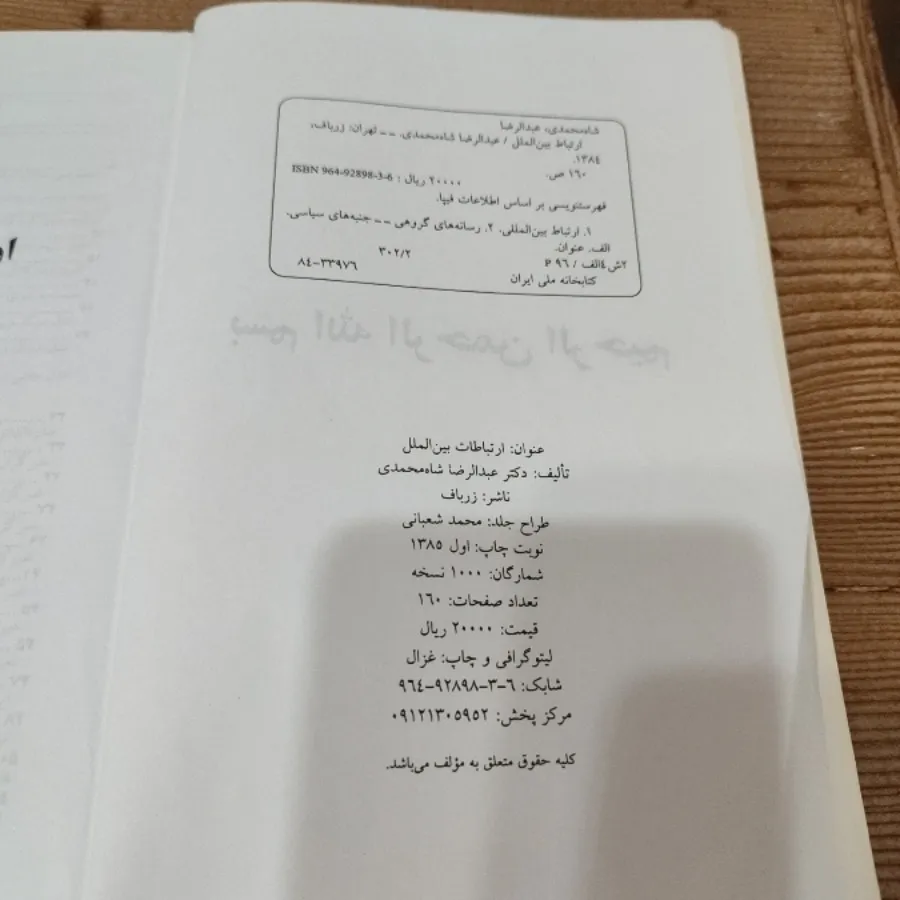 شاه‌محمدی، عبدالرضا
ارتباط بین‌الملل / عبدالرضا شاه‌محمدی. -- تهران: زرباف،
۱۳۸٤.
۱۶۰ ص.
۲۰۰۰۰ ریال : ISBN 964-92898-3-6
فهرستنویسی بر اساس اطلاعات فیپا.
۱. ارتباط بین‌المللی. ۲. رسانه‌های گروهی -- جنبه‌های سیاسی.
الف. عنوان.
۲ش٤الف / ۹۶ P ۳۰۲/۲
کتابخانه ملی ایران ۸٤-۳۳۹۷۶
بسم الله الرحمن الرحیم
عنوان: ارتباطات بین‌الملل
تألیف: دکتر عبدالرضا شاه‌محمدی
ناشر: زرباف
طراح جلد: محمد شعبانی
نوبت چاپ: اول ۱۳۸۵
شمارگان: ۱۰۰۰ نسخه
تعداد صفحات: ۱۶۰
قیمت: ۲۰۰۰۰ ریال
لیتوگرافی و چاپ: غزال
شابک: ۶-۳-۹۲۸۹۸-۹۶٤
مرکز پخش: ۰۹۱۲۱۳۰۵۹۵۲
کلیه حقوق متعلق به مؤلف می‌باشد.